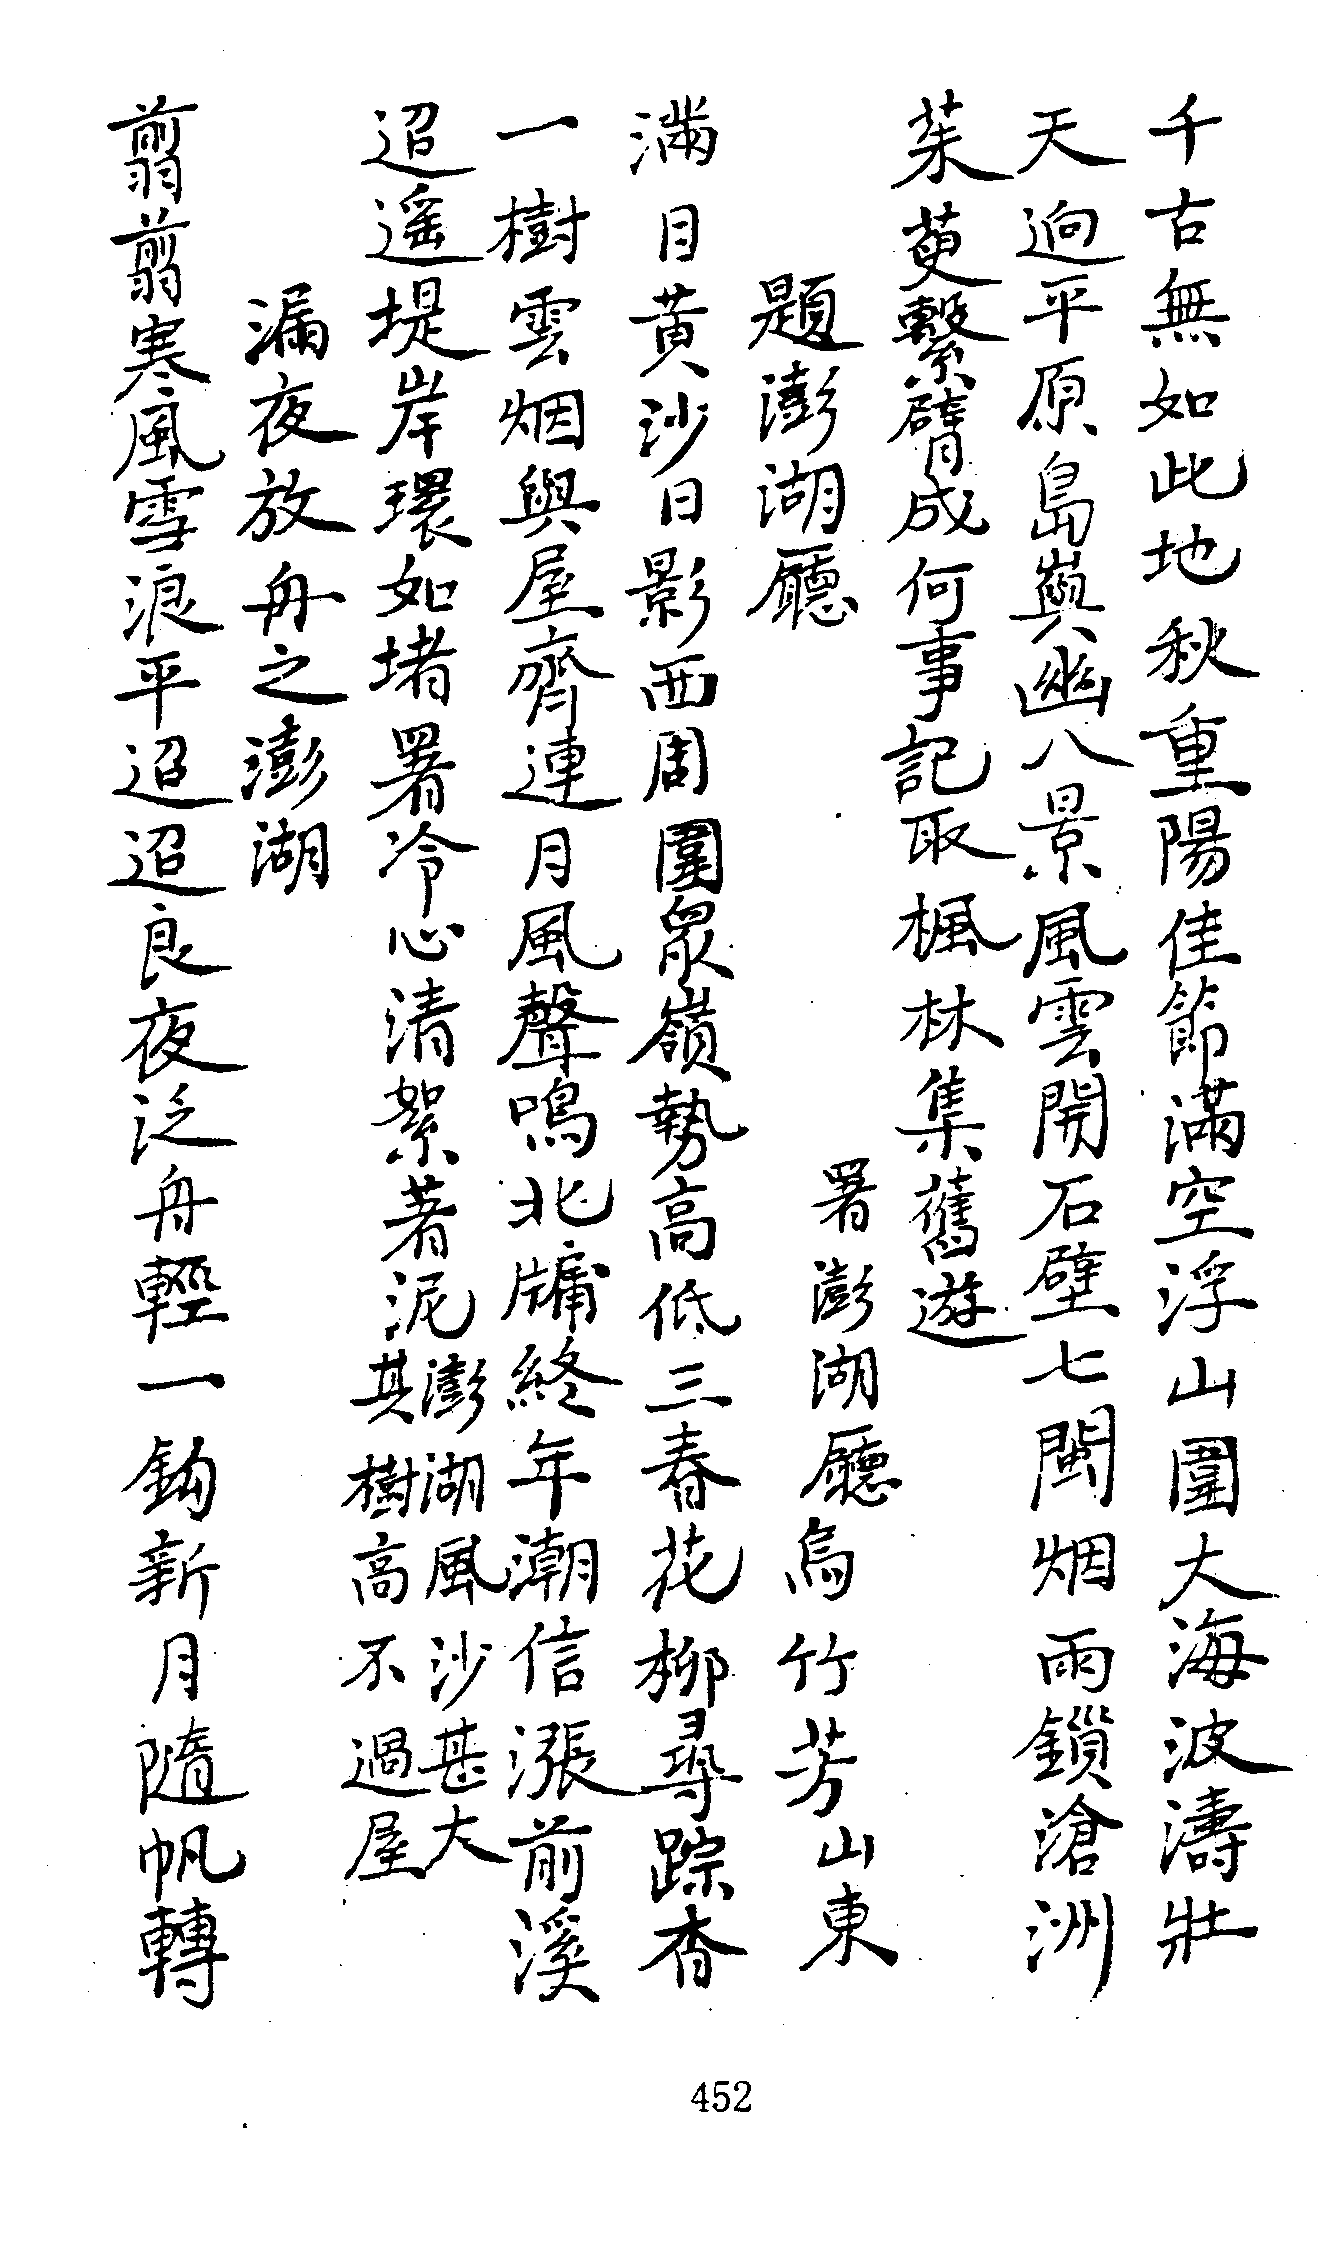 千古無如此地秋重陽佳節滿空浮山圍大海波濤壯
天迥平原島嶼幽八景風雲開石壁七閩烟雨鎖滄洲
茱萸繫臂成何事記取楓林集舊遊
題澎湖廳
署澎湖廳烏竹芳山東
滿目黃沙日影西周圍眾嶺勢高低三春花柳尋踪杳
一樹雲烟與屋齊連月風聲鳴北牖終年潮信漲前溪
迢遙堤岸環如堵署冷心清絮著泥
澎湖風沙甚大
其樹高不過屋
漏夜放舟之澎湖
翦翦寒風雪浪平迢迢良夜泛舟輕一鈎新月隨帆轉
452